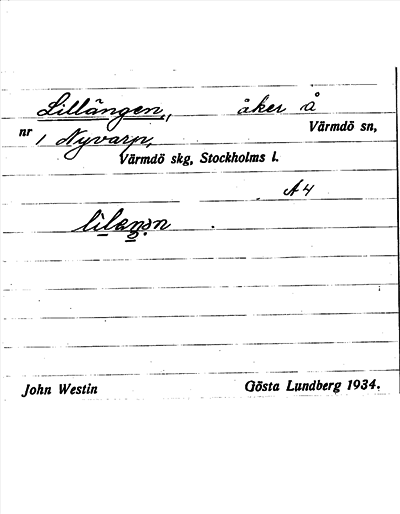 Lillängen, åker å
nr 1 Nyvarp, Värmdö sn,
Värmdö skg, Stockholms l.
A4
John Westin Gösta Lundberg 1934.